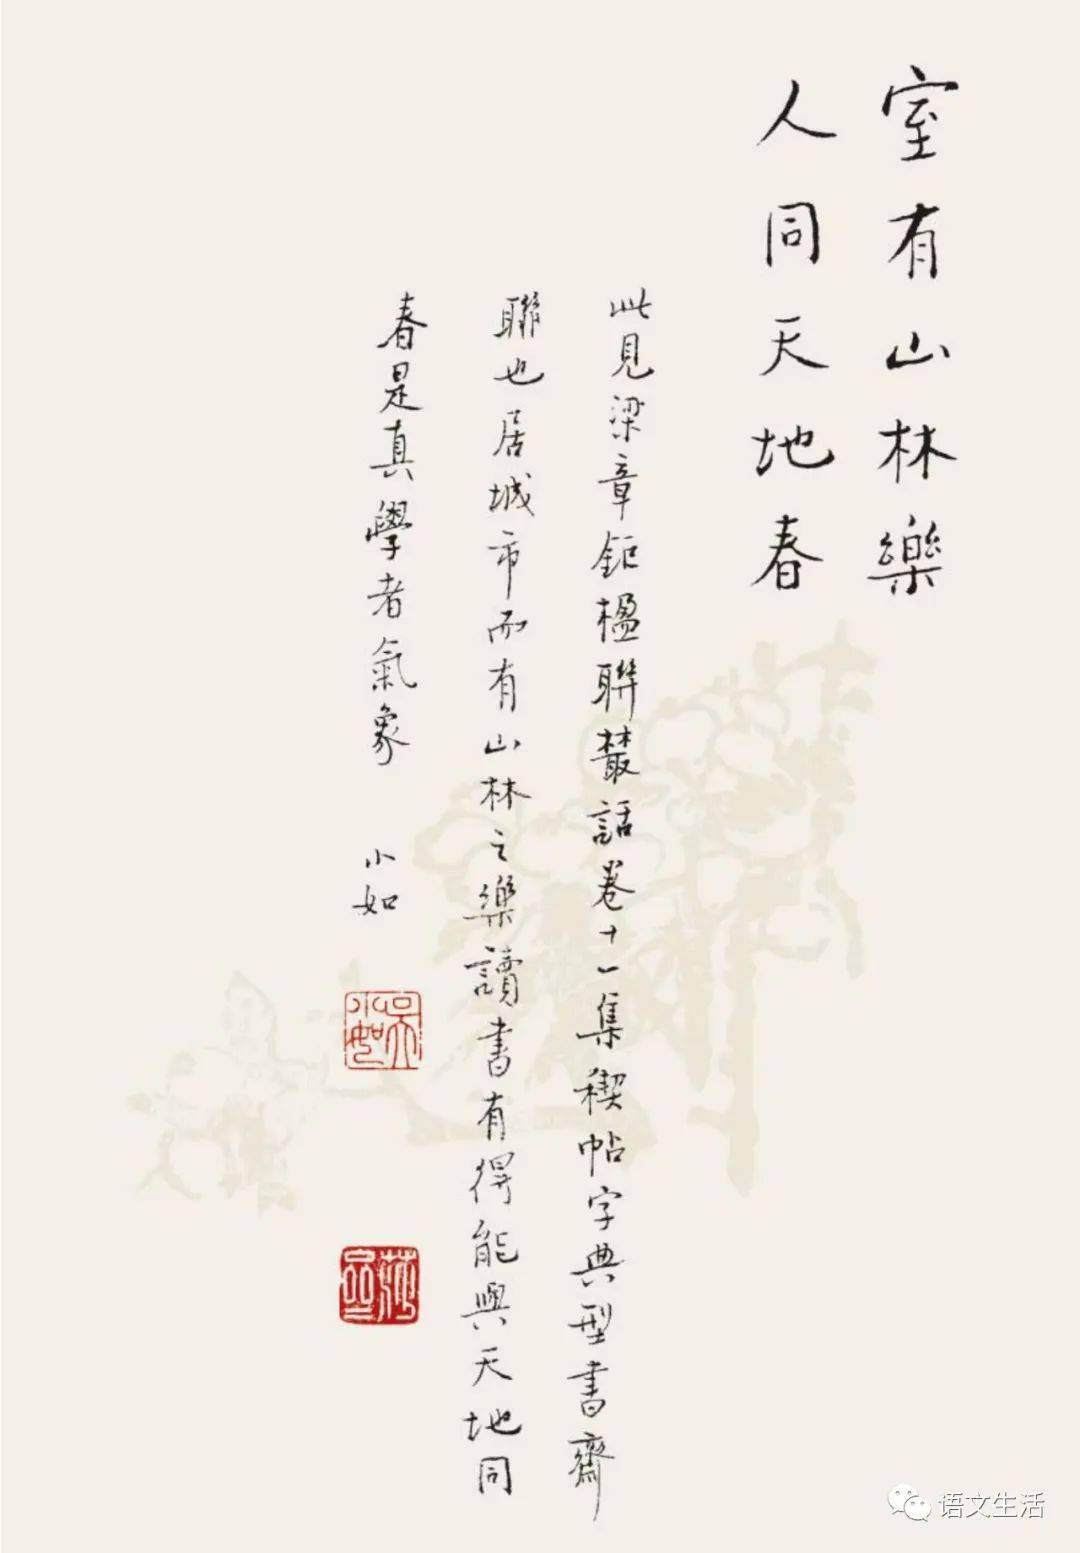 室有山林樂
人同天地春
此見梁章鉅楹聯叢話卷十一集禊帖字典型書齋
聯也居城市而有山林之樂讀書有得能與天地同
春是真學者氣象
小如
吳小如
莎齋
语文生活